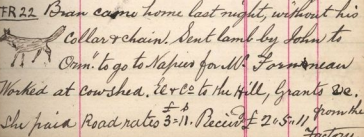 FR 22 Bran came home last night, without his
collar & chain. Sent lamb by John to
Orm. to go to Napier for Mr
Worked at cowshed. to the Hill, Grants &c.
£ s
She paid Road rates 3=11. Receiv'd £ 2=5=11 from the
Factor